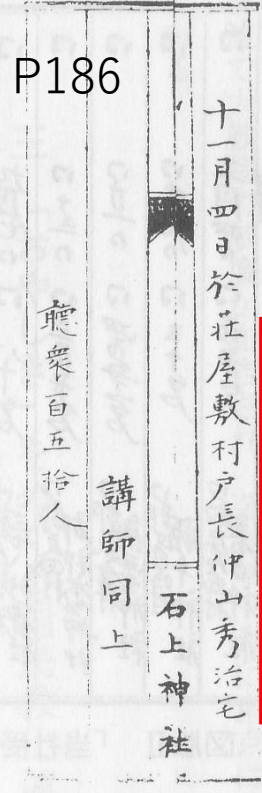 P186
十一月四日於荘屋敷村戸長仲山秀治宅
石上神社
講師同上
聴衆百五拾人